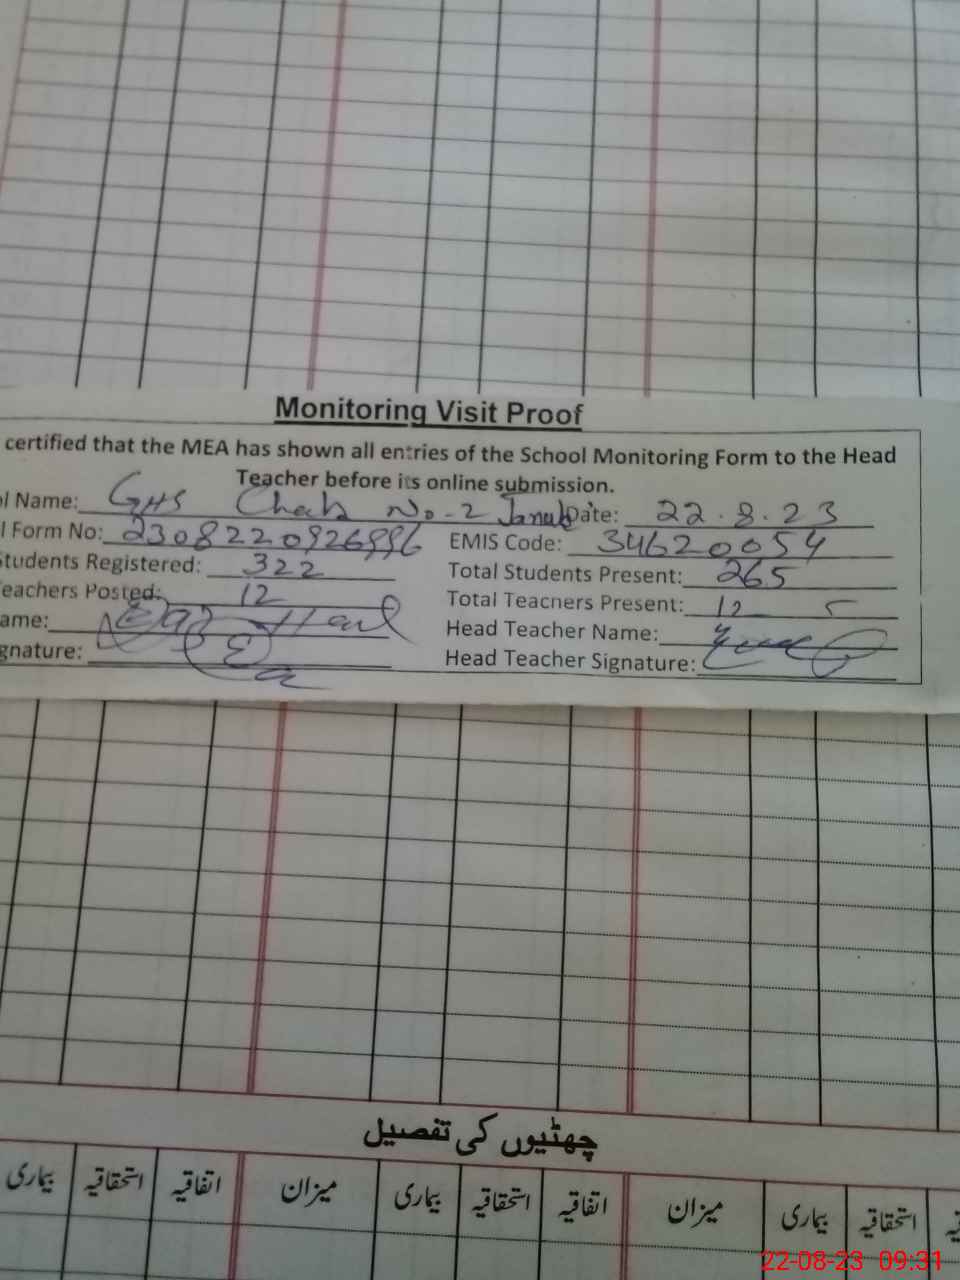 Monitoring Visit Proof
certified that the MEA has shown all entries of the School Monitoring Form to the Head
Teacher before its online submission.
l Name: GHS Chak No-2 Janub Date: 22.8.23
l Form No: EMIS Code: 34620054
tudents Registered: 322 Total Students Present: 265
eachers Posted: 12 Total Teachers Present: 12
ame: Head Teacher Name:
gnature: Head Teacher Signature:
چھٹیوں کی تفصیل
بیماری استحقاقیہ اتفاقیہ میزان بیماری استحقاقیہ اتفاقیہ میزان بیماری استحقاقیہ
22-08-23 09:31